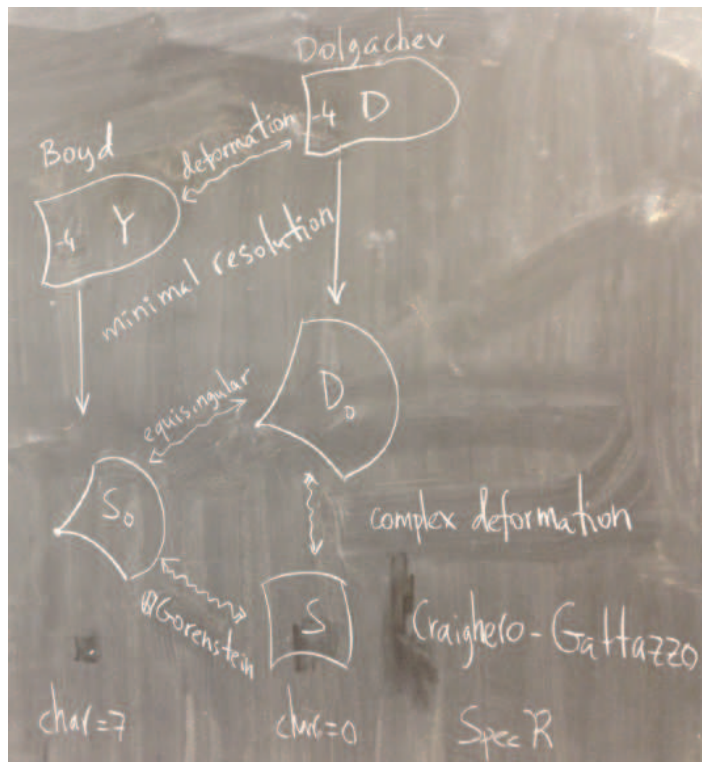 Dolgachev
-4 D
Boyd
deformation
-4 Y
minimal resolution
D₀
equisingular
S₀
complex deformation
QGorenstein
S
Craighero-Gattazzo
char=7
char=0
Spec R